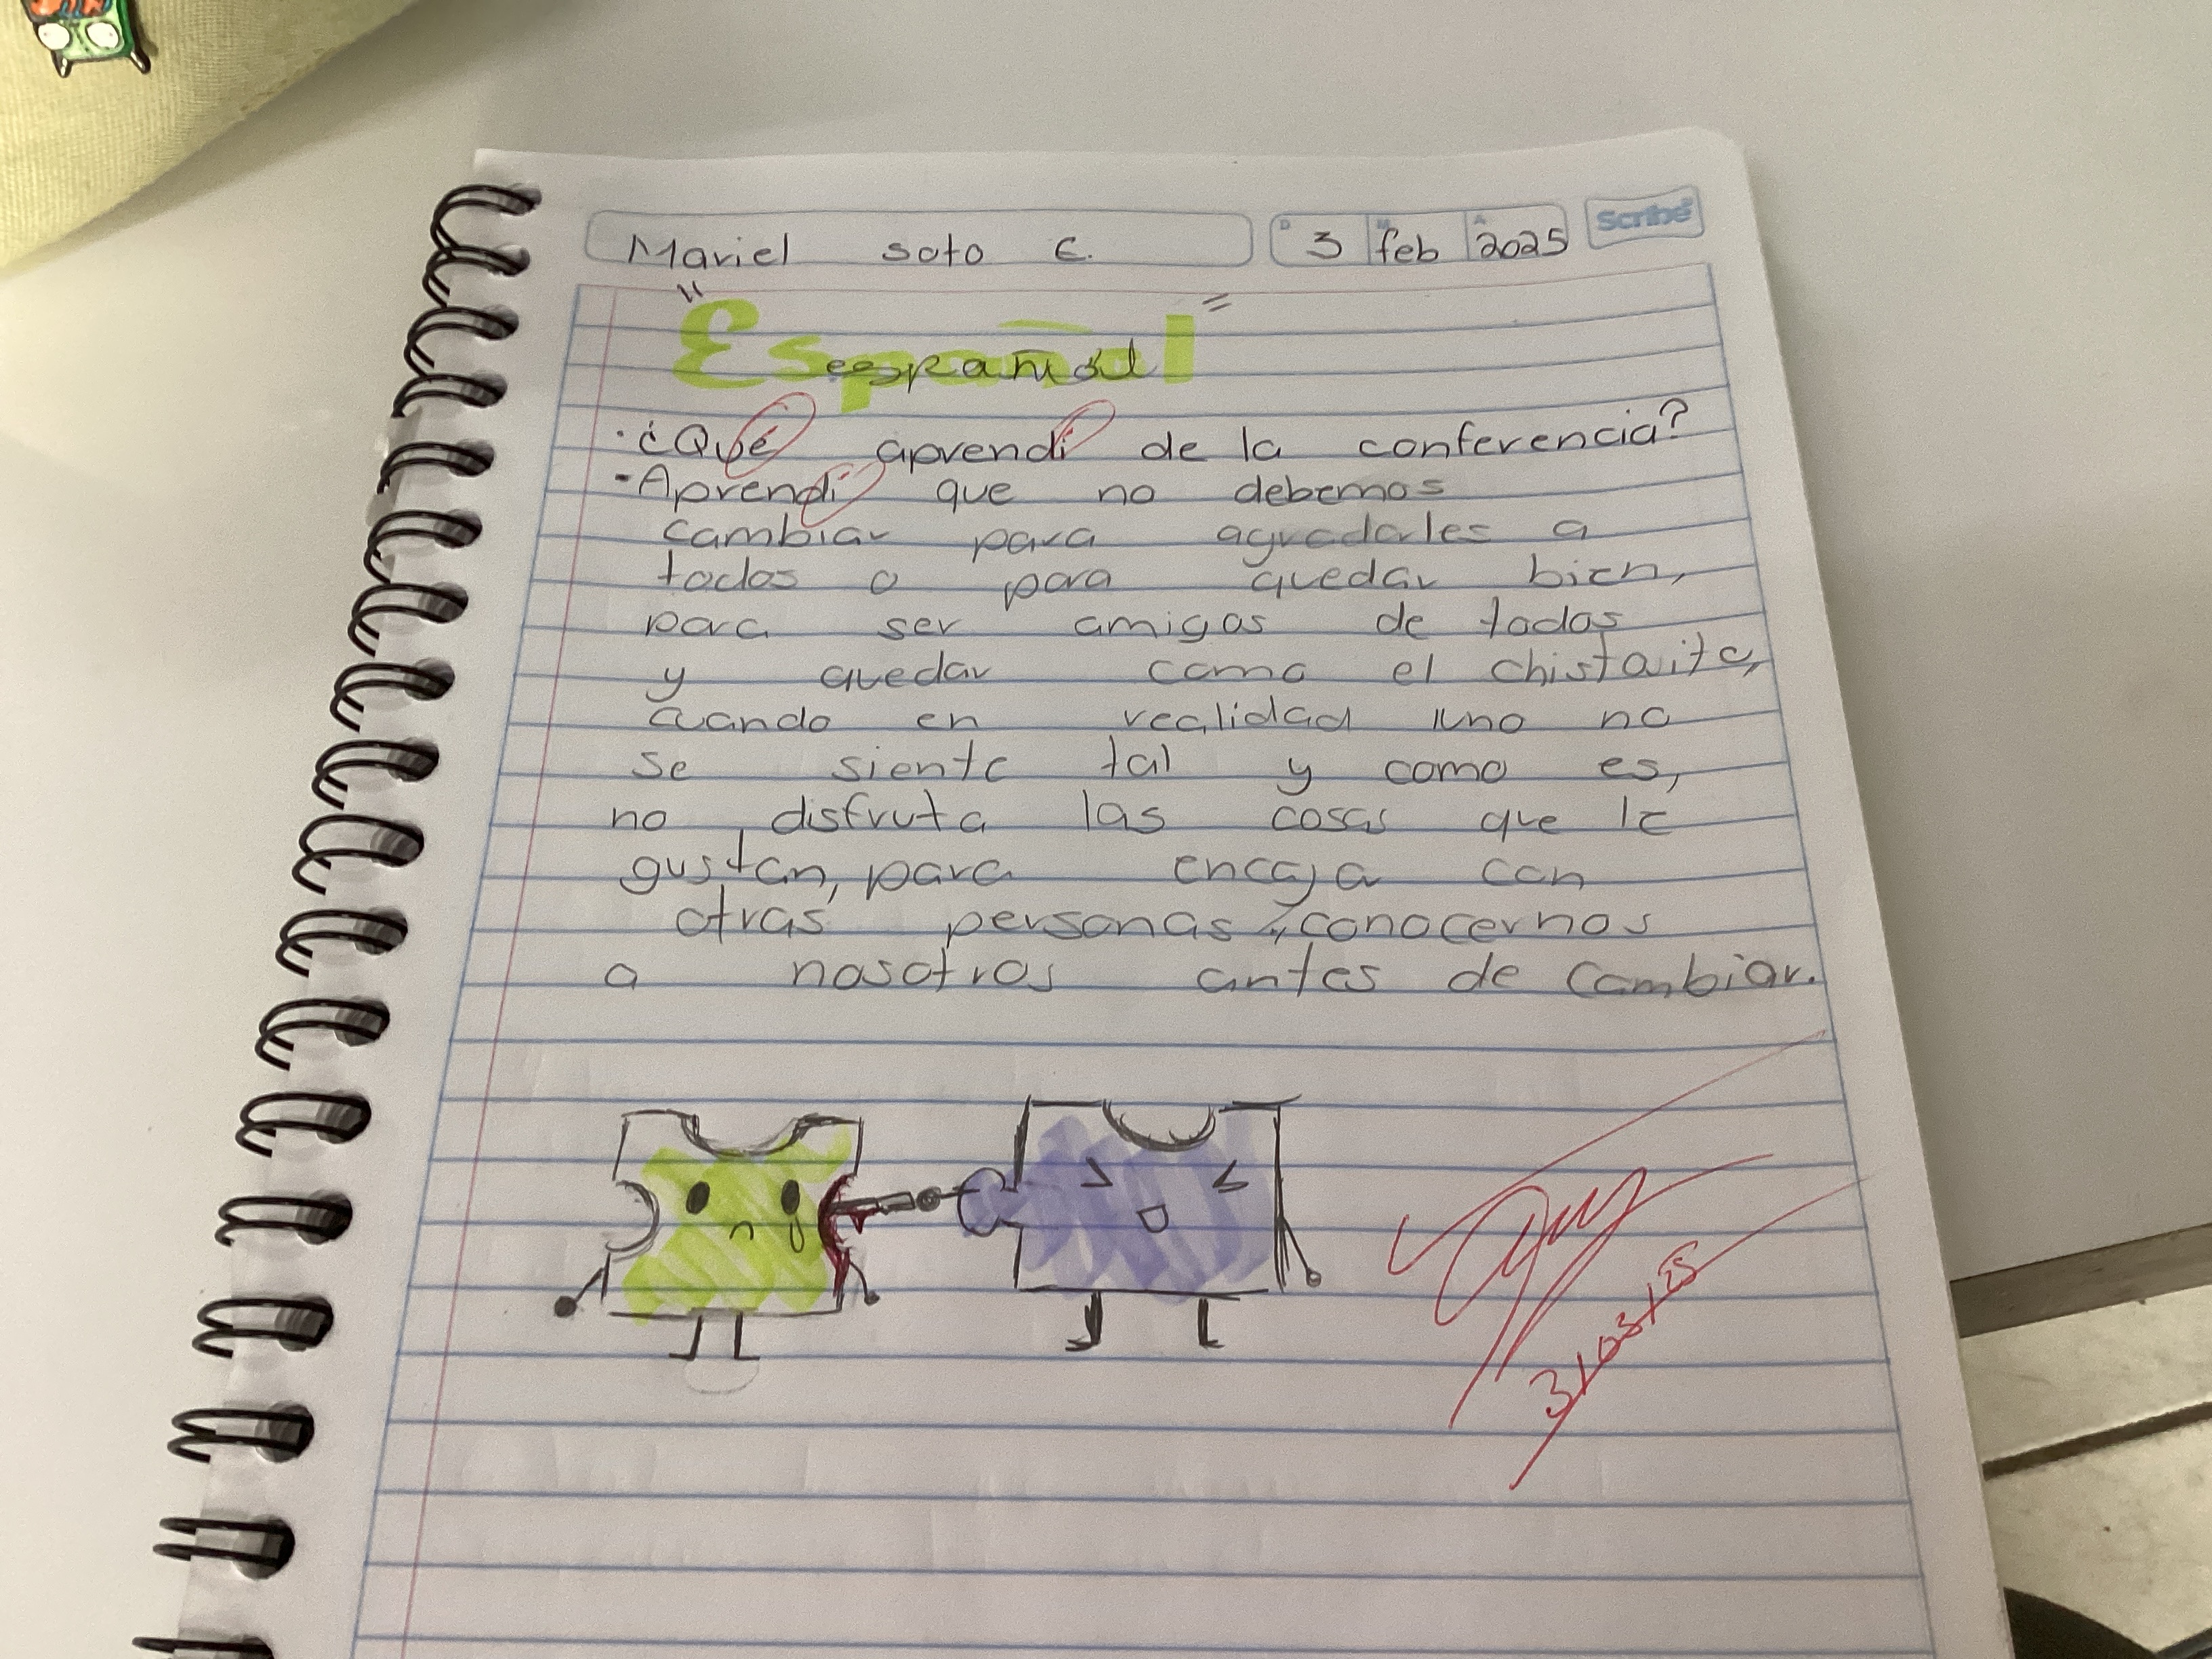 Mariel soto E.
D 3 feb A 2025
Scribe
"Español"
español
· ¿Qué aprendí de la conferencia?
- Aprendí que no debemos
cambiar para agradarles a
todos o para quedar bien,
para ser amigos de todos
y quedar como el chistosito,
cuando en realidad uno no
se siente tal y como es,
no disfruta las cosas que le
gustan, para encaja con
otras personas, conocernos
a nosotros antes de cambiar.
3/03/25